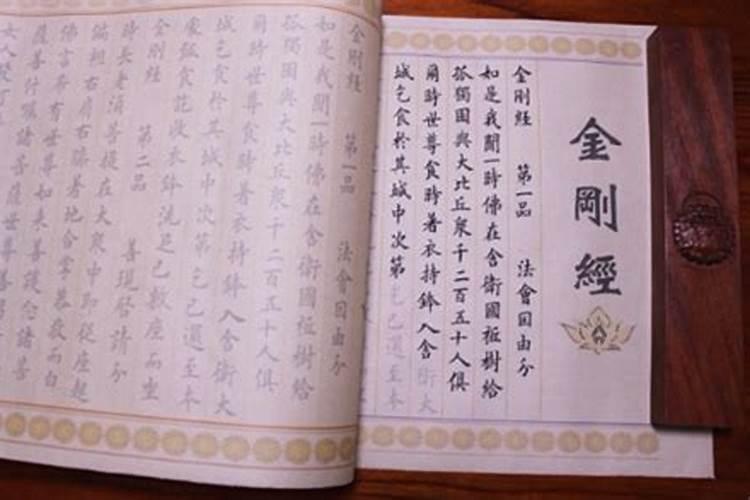 金剛經
金剛經 第一品 法會因由分
如是我聞一時佛在舍衛國祇樹給
孤獨園與大比丘衆千二百五十人俱
爾時世尊食時著衣持鉢入舍衛大
城乞食於其城中次第乞已還至本
金剛經 第一品 法會因由分
如是我聞一時佛在舍衛國祇樹給
孤獨園與大比丘衆千二百五十人俱
爾時世尊食時著衣持鉢入舍衛大
城乞食於其城中次第乞已還至本
處飯食訖收衣鉢洗足已敷座而坐
金剛經 第二品 善現啓請分
時長老須菩提在大衆中即從座起
偏袒右肩右膝著地合掌恭敬而白
佛言希有世尊如來善護念諸菩
薩善付囑諸菩薩世尊善男
女人發阿